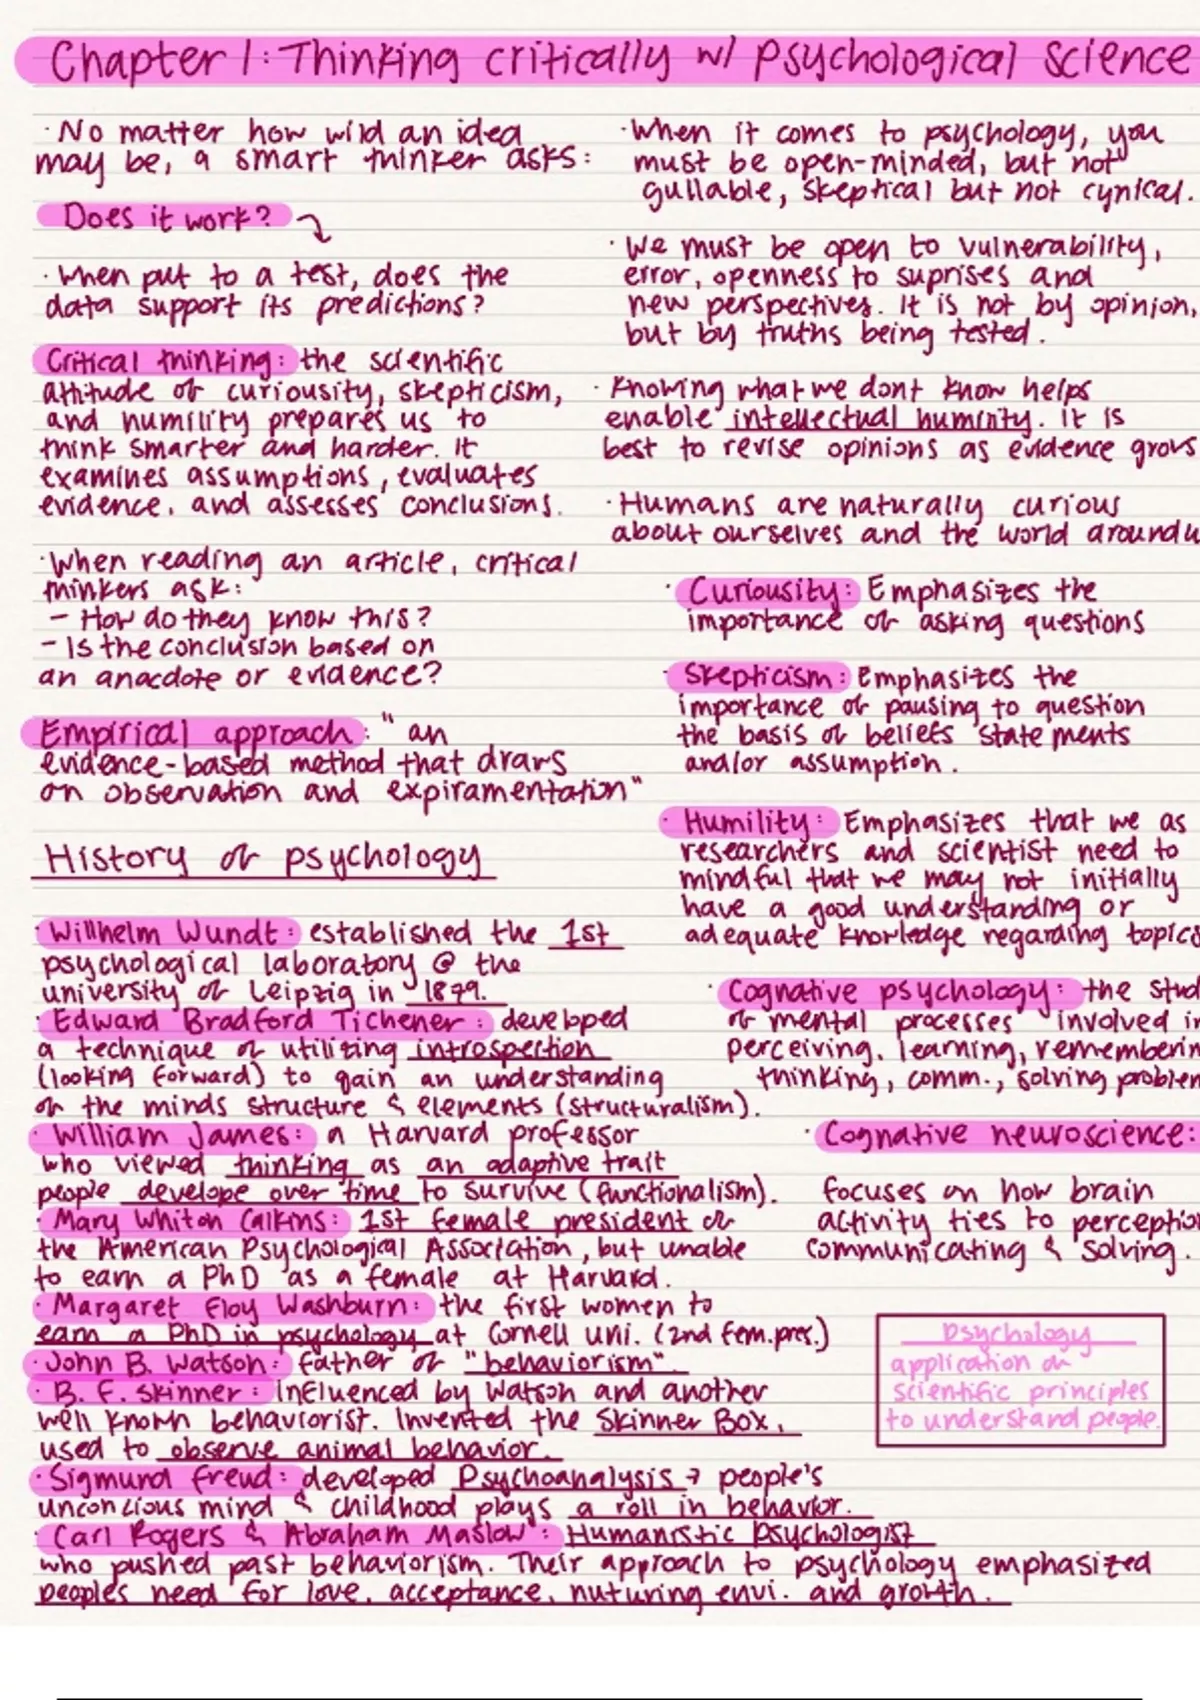 Chapter 1: Thinking critically w/ psychological science
· No matter how wild an idea
may be, a smart thinker asks:
Does it work?
· When put to a test, does the
data support its predictions?
Critical thinking: the scientific
attitude of curiousity, skepticism,
and humility prepares us to
think smarter and harder. It
examines assumptions, evaluates
evidence, and assesses conclusions.
· When reading an article, critical
thinkers ask:
- How do they know this?
- Is the conclusion based on
an anacdote or evidence?
Empirical approach: "an
evidence-based method that draws
on observation and expiramentation"
History of psychology
· Willhelm Wundt: established the 1st
psychological laboratory @ the
university of Leipzig in 1879.
· Edward Bradford Tichener: developed
a technique of utilizing introspection
(looking forward) to gain an understanding
of the minds structure & elements (structuralism).
· William James: a Harvard professor
who viewed thinking as an adaptive trait
people develope over time to survive (functionalism).
· Mary Whiton Calkins: 1st female president of
the American Psychological Association, but unable
to earn a PhD as a female at Harvard.
· Margaret Floy Washburn: the first women to
earn a PhD in psychology at Cornell uni. (2nd fem.pres.)
· John B. Watson: father of "behaviorism".
· B. F. Skinner: Influenced by Watson and another
well known behaviorist. Invented the Skinner Box,
used to observe animal behavior.
· Sigmund Freud: developed Psychoanalysis → people's
unconcious mind & childhood plays a roll in behavior.
· Carl Rogers & Abraham Maslow: Humanistic Psychologist
who pushed past behaviorism. Their approach to psychology emphasized
peoples need for love, acceptance, nuturing envi. and growth.
· When it comes to psychology, you
must be open-minded, but not
gullable, skeptical but not cynical.
· We must be open to vulnerability,
error, openness to suprises and
new perspectives. It is not by opinion,
but by truths being tested.
· Knowing what we dont know helps
enable intellectual humility. It is
best to revise opinions as evidence grows
· Humans are naturally curious
about ourselves and the world around u
· Curiousity: Emphasizes the
importance of asking questions
· Skepticism: Emphasizes the
importance of pausing to question
the basis of beliefs statements
and/or assumption.
· Humility: Emphasizes that we as
researchers and scientist need to
mindful that we may not initially
have a good understanding or
adequate knowledge regarding topics
· Cognative psychology: the stud
of mental processes involved in
perceiving, learning, rememberin
thinking, comm., solving problem
· Cognative neuroscience:
focuses on how brain
activity ties to perception
communicating & solving.
Psychology
application on
scientific principles
to understand people.